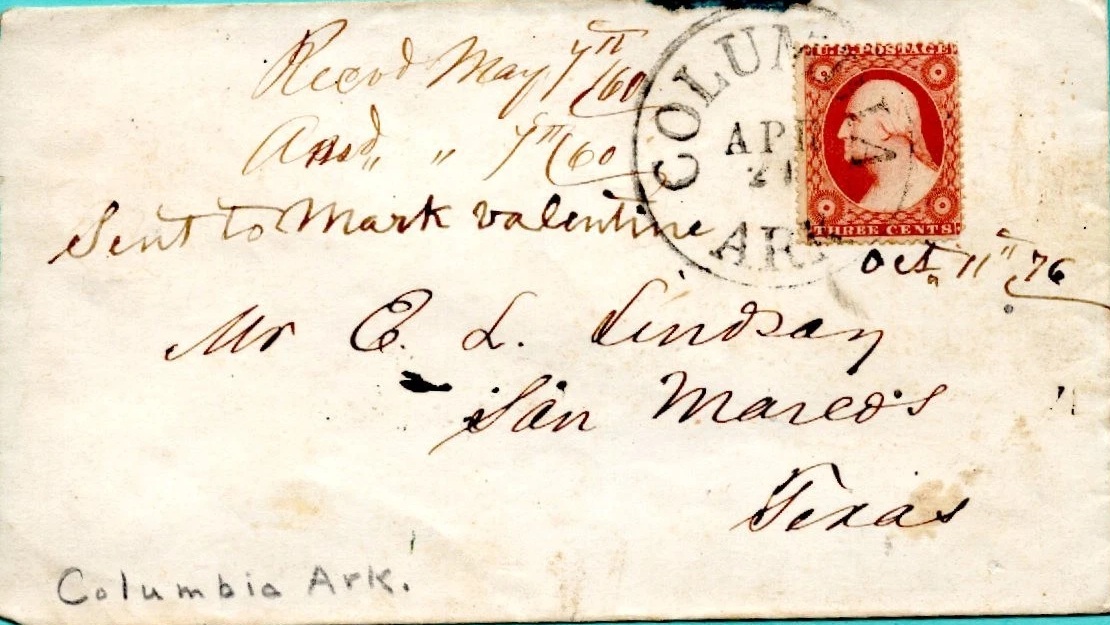 Recvd May 7th/60
Ansd „ „ 7th/60
Sent to Mark valentine
Oct. 11th 76
COLUM A
APR
21
ARK
U.S. POSTAGE
THREE CENTS
Mr E. L. Lindsay
San Marcos
Texas
Columbia Ark.